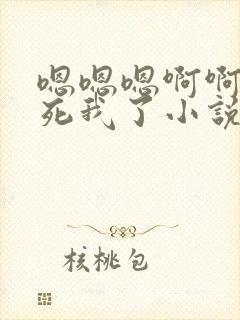 嗯嗯嗯啊啊
死我了小説
核桃包